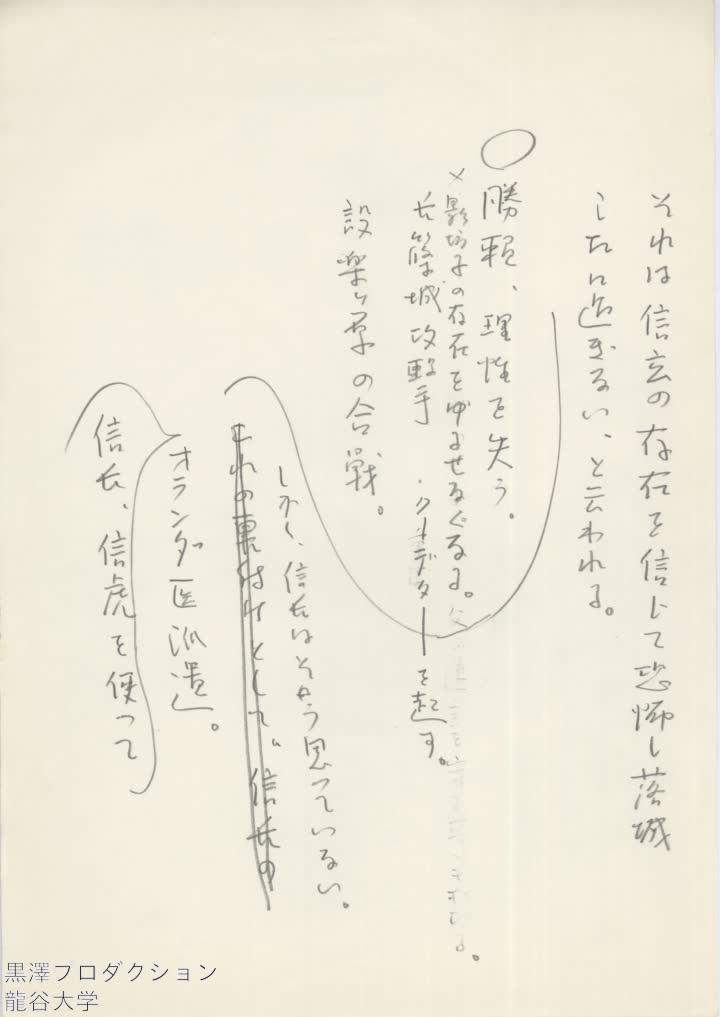 それは信玄の存在を信じて恐怖し落城
したに過ぎない、と云われる。
◯勝頼、理性を失う。
×影坊子の存在をゆるせなくなる。
長篠城攻撃
・クーデターを起す。
設楽ヶ原の合戦。
しかし、信長はそう思っていない。
これの裏付けとして、信長の
オランダ医派遣。
信長、信虎を使って
黒澤プロダクション
龍谷大学